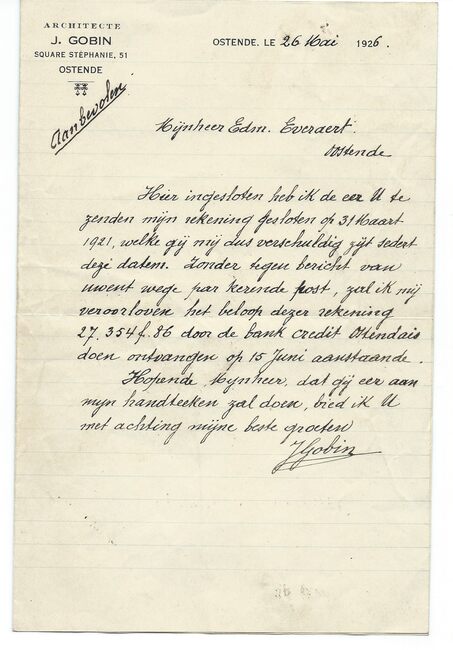 ARCHITECTE
J. GOBIN
SQUARE STÉPHANIE, 51
OSTENDE
Aanbevolen
OSTENDE, LE 26 Mai 1926.
Mijnheer Edm. Everaert.
Oostende
Hier ingesloten heb ik de eer U te
zenden mijn rekening gesloten op 31 Maart
1921, welke gij mij dus verschuldig zijt sedert
deze datem. Zonder tegen bericht van
uwent wege par kerende post, zal ik mij
veroorloven het beloop dezer rekening
27.354 f. 86 door de bank credit Ostendais
doen ontvangen op 15 Juni aanstaande.
Hopende, Mijnheer, dat gij eer aan
mijn handteeken zal doen, bied ik U
met achting mijne beste groeten
JGobin